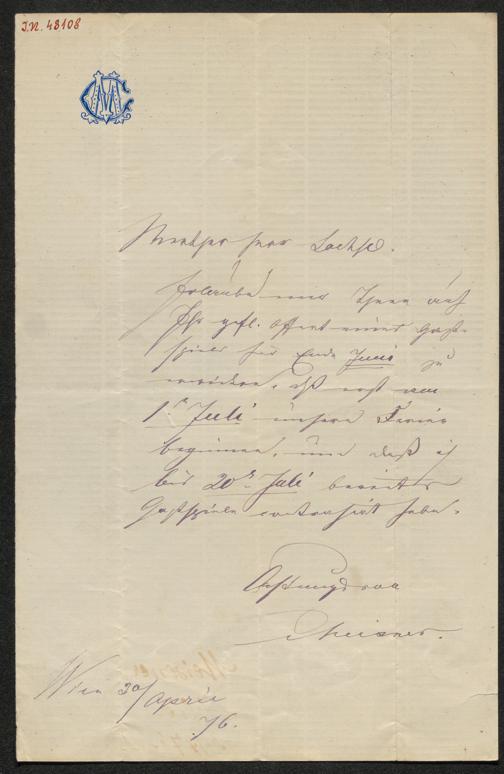 I.N. 48108
Werther Herr Sachse.
Erlaube mir Ihnen auf
Ihr gefl. Offert eines Gast-
spieles für Ende Juni zu
erwidern, daß erst am
1ten Juli unsere Ferien
beginnen, und daß ich
bis 20ten Juli bereits
Gastspiele contrahirt habe.
Achtungsvoll
Meixner.
Wien 30/ April
76.